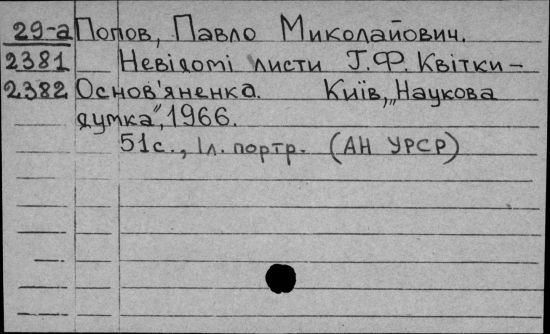 29-а Попов, Павло Миколайович.
2381 Невідомі листи Г.Ф. Квітки-
2382 Основ'яненка. Київ, „Наукова
думка", 1966.
51с., 1л. портр. (АН УРСР)